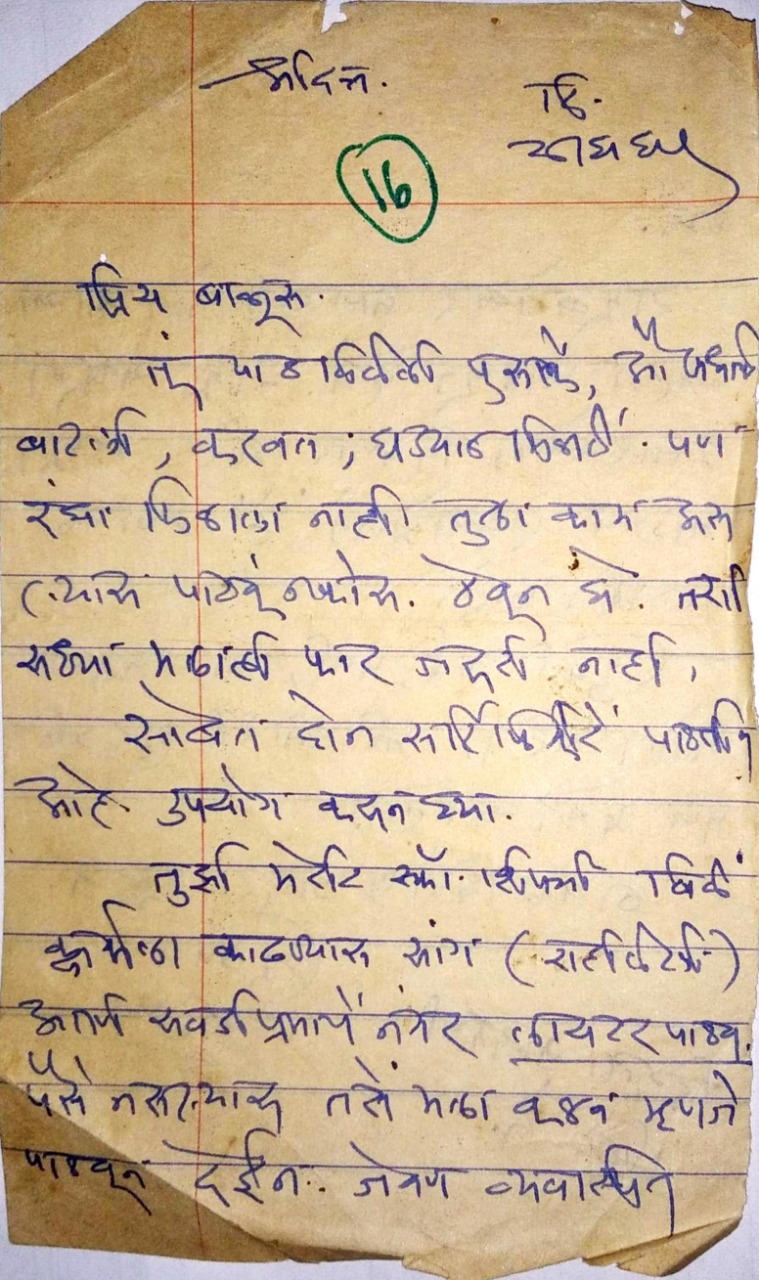 श्रीदत्त.
चि.
16
प्रिय बाळूस.
तूं पाठविलेली पुस्तके, औषधाची
बाटली, करवत, घड्याळ मिळाले. पण
रंधा मिळाला नाही तुला काम अस
ल्यास पाठवूं नकोस. ठेवून घे. तशी
सध्या मलाही फार जरुरी नाही,
सोबत दोन सर्टिफिकिटें पाठवीत
आहे उपयोग करून घ्या.
तुझी मेरीट स्कॉ. शिपची बिलें
काढण्यास सांग (राहिलेली)
आणि सवडीप्रमाणें नंतर लायटर पाठव.
पैसे नसल्यास तसें मला कळव म्हणजे
पाठवून देईन. जेवण व्यवस्थित